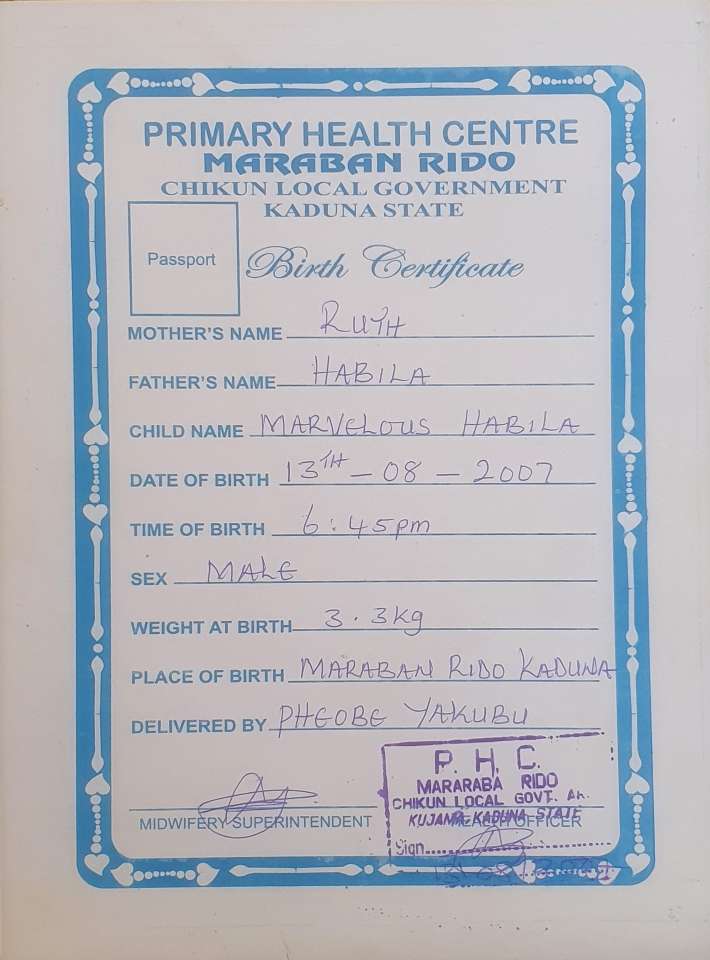 PRIMARY HEALTH CENTRE
MARABAN RIDO
CHIKUN LOCAL GOVERNMENT
KADUNA STATE
Passport
Birth Certificate
MOTHER'S NAME RUTH
FATHER'S NAME HABILA
CHILD NAME MARVELOUS HABILA
DATE OF BIRTH 13TH - 08 - 2007
TIME OF BIRTH 6:45pm
SEX MALE
WEIGHT AT BIRTH 3.3kg
PLACE OF BIRTH MARABAN RIDO KADUNA
DELIVERED BY PHEOBE YAKUBU
P. H. C.
MARARABA RIDO
CHIKUN LOCAL GOVT.
KUJAMA, KADUNA STATE
MIDWIFERY SUPERINTENDENT HEALTH OFFICER
Sign